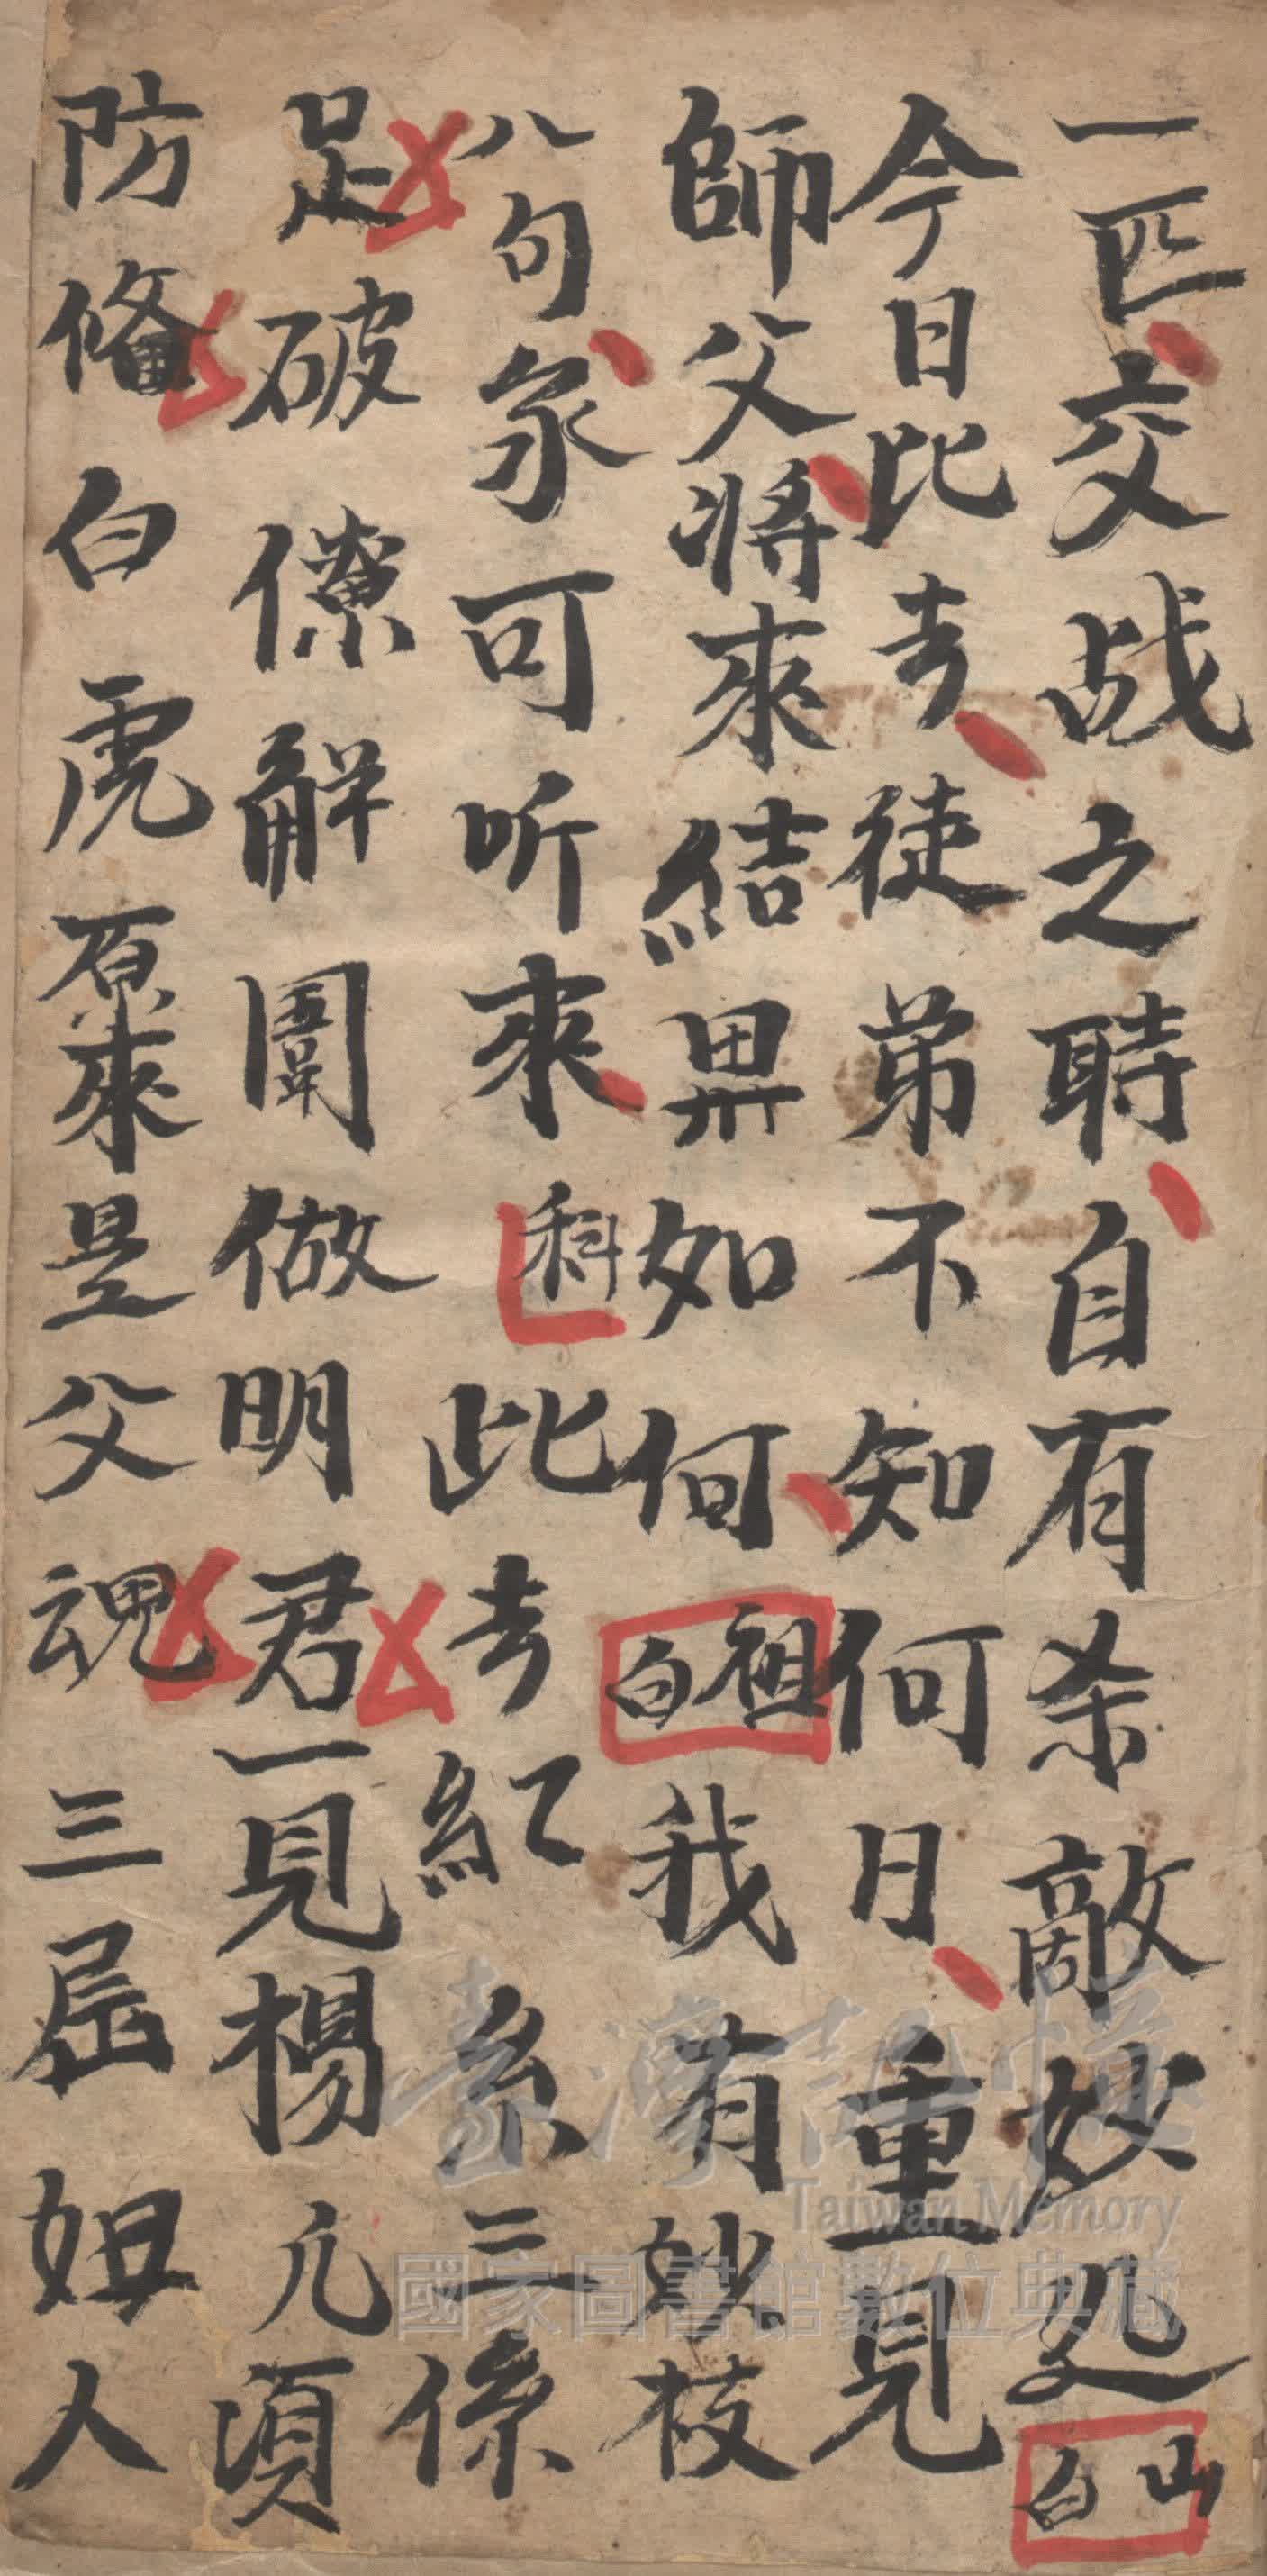 一匹交战之時自有杀敵妙処山白
今日比去徒弟不知何日重見
師父將來結果如何祖白我有妙枝
八句家可听來科此去紅糸三係
足破僚解圍做明君一見楊凢須
防俻白虎原來是父魂三屆姐人
臺灣記憶
Taiwan Memory
國家圖書館數位典藏